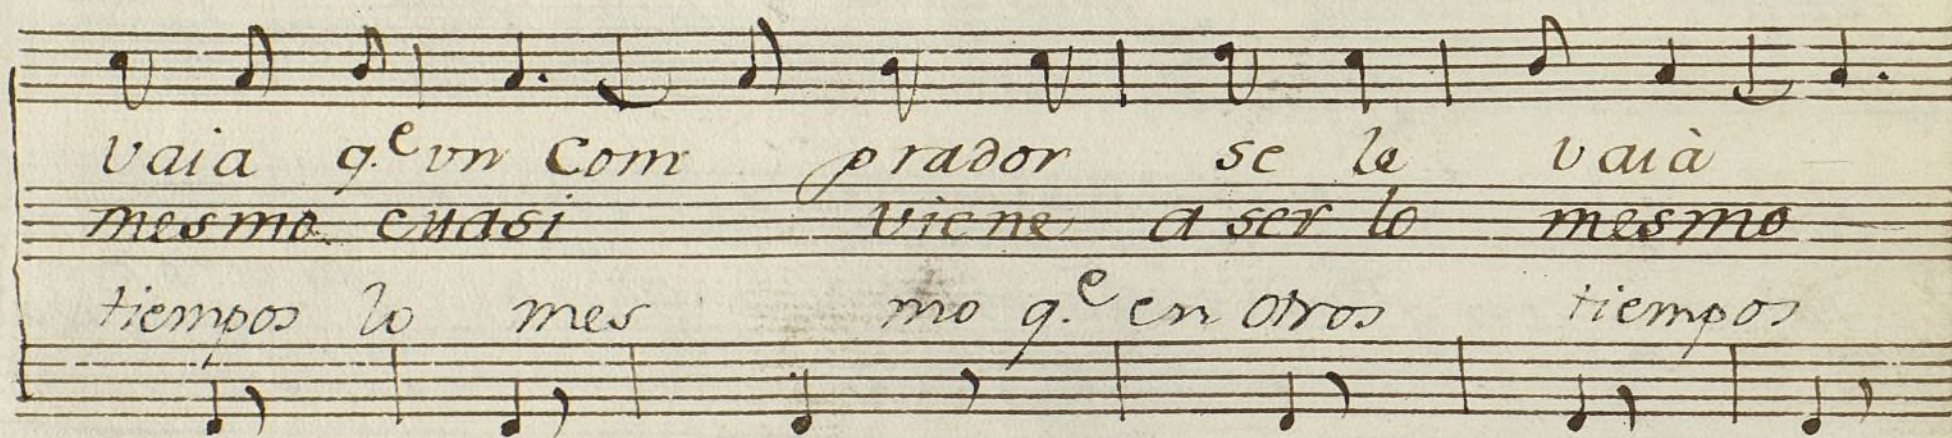 vaia q.e vn Com prador se le vaià
mesmo cuasi viene a ser lo mesmo
tiempos lo mes mo q.e en otros tiempos